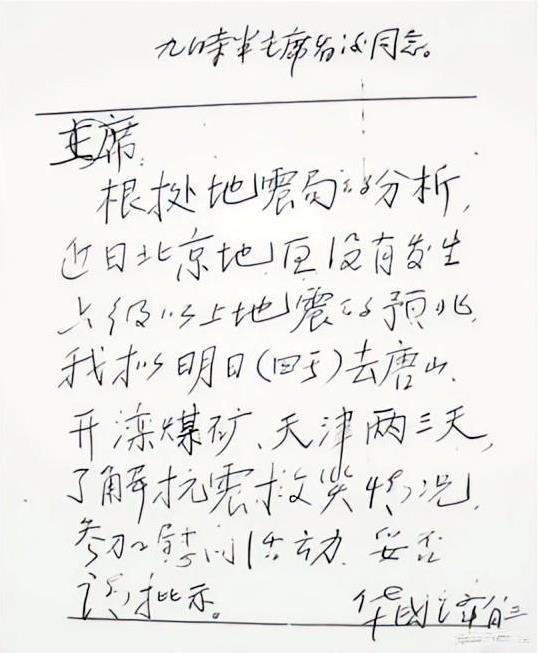 九时半主席看过同意。
主席:
根据地震局的分析,
近日北京地区没有发生
六级以上地震的预兆,
我拟明日(四号)去唐山、
开滦煤矿、天津两三天,
了解抗震救灾情况,
参加慰问活动。妥否
请批示。 华國锋